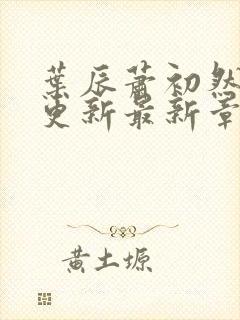 葉辰蕭初然
更新最新章
黃土塬